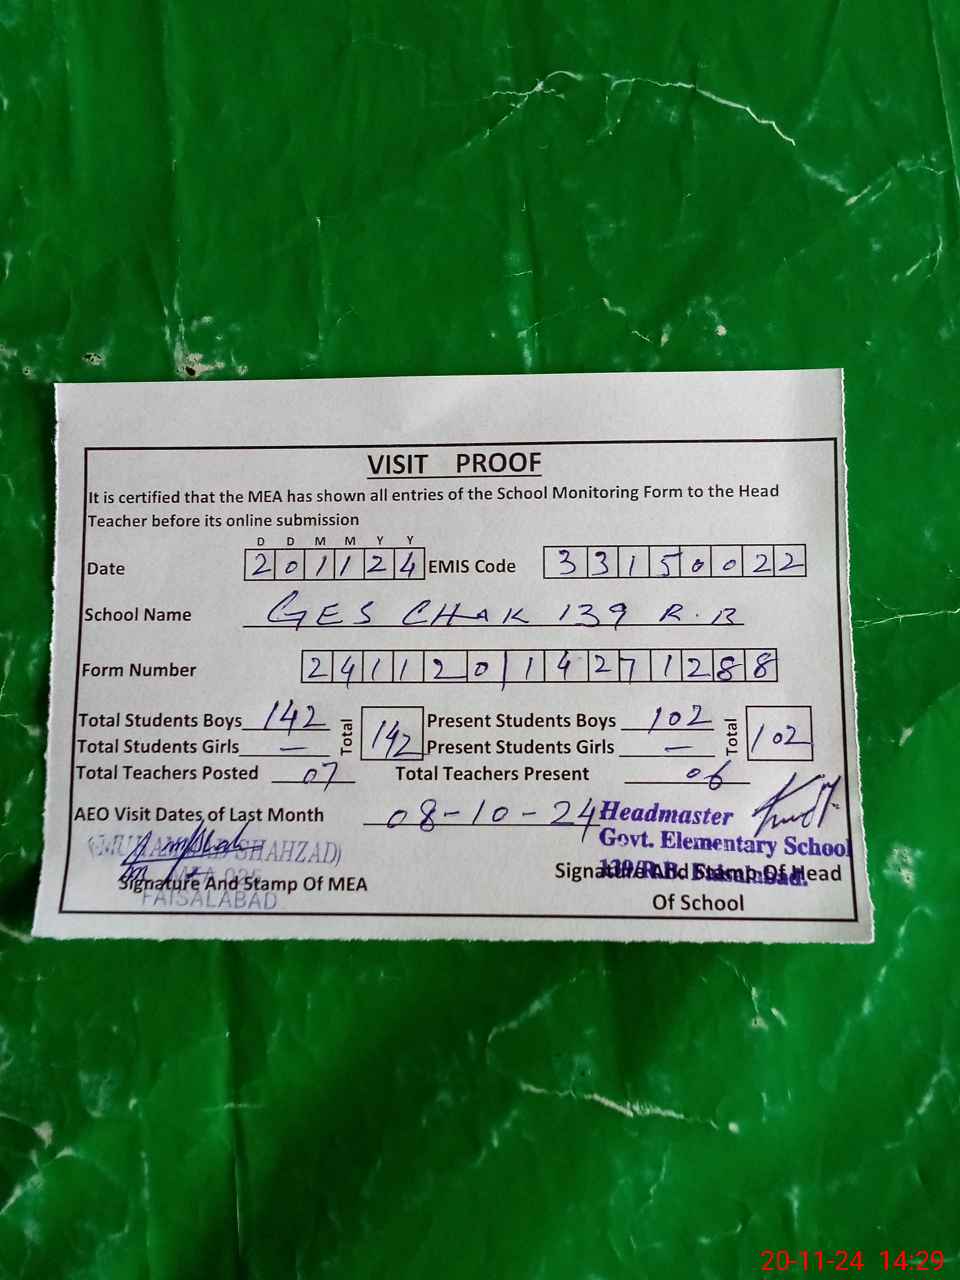 VISIT PROOF
It is certified that the MEA has shown all entries of the School Monitoring Form to the Head
Teacher before its online submission
D D M M Y Y
Date 2 0 1 1 2 4 EMIS Code 3 3 1 5 0 0 2 2
School Name GES CHAK 139 R.B
Form Number 2 4 1 1 2 0 1 1 4 2 7 1 2 8 8
Total Students Boys 142 Total 142 Present Students Boys 102 Total 102
Total Students Girls — Present Students Girls —
Total Teachers Posted 07 Total Teachers Present 06
AEO Visit Dates of Last Month 08-10-24 Headmaster
Govt. Elementary School
(MUHAMMAD SHAHZAD)
139/R.B. Faisalabad.
Signature And Stamp Of MEA Signature And Stamp Of Head
FAISALABAD Of School
20-11-24 14:29